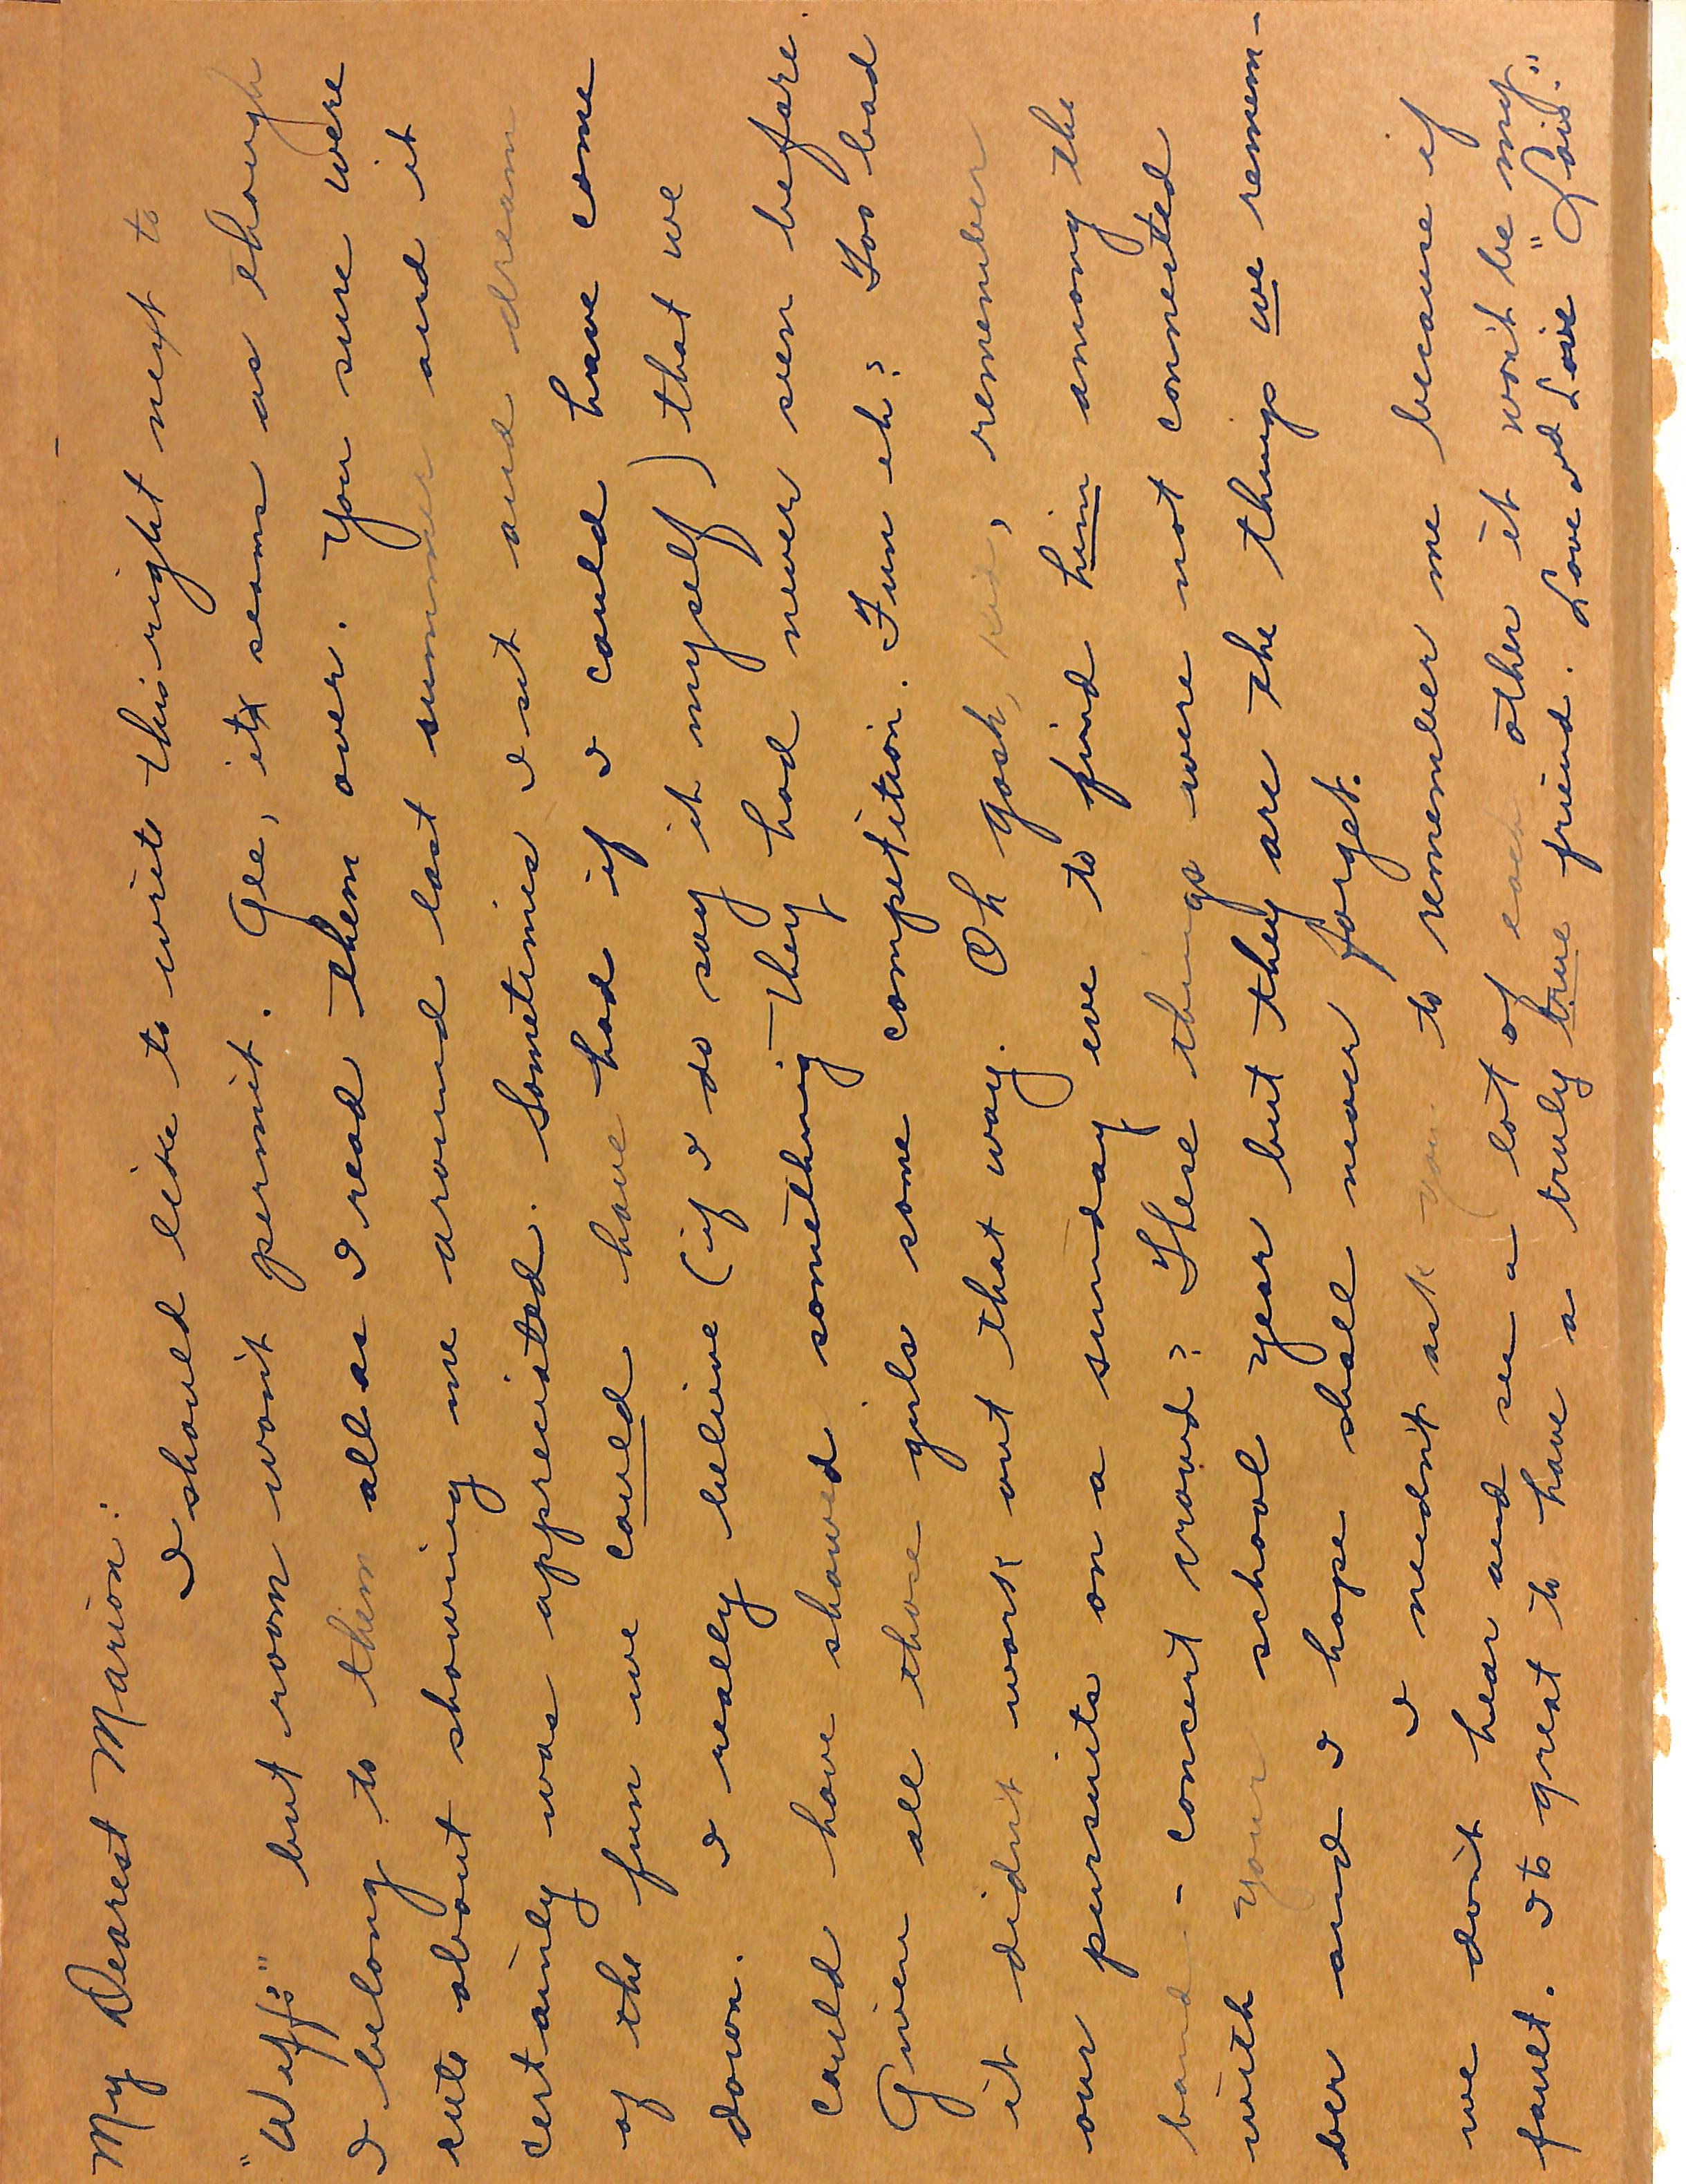 My Dearest Marion:
I should like to write this right next to
"Weff" but room won't permit. Gee, it seems as though
I belong to them all as I read them over. You sure were
cute about showing me around last summer and it
certainly was appreciated. Sometimes I sit and dream
of the fun we could have had if I could have come
down. I really believe (if I do say it myself) that we
could have showed something they had never seen before.
Given all those girls some competition. Fun eh? Too bad
it didn't work out that way. Oh gosh, kid, remember
our pursuits on a sunday eve to find him among the
band - concert crowd? These things were not connected
with your school year but they are the things we remem-
ber and I hope shall never forget.
I needn't ask you to remember me because if
we don't hear and see a lot of each other it won't be my
fault. Its great to have a truly true friend. Love and Love "Lois."